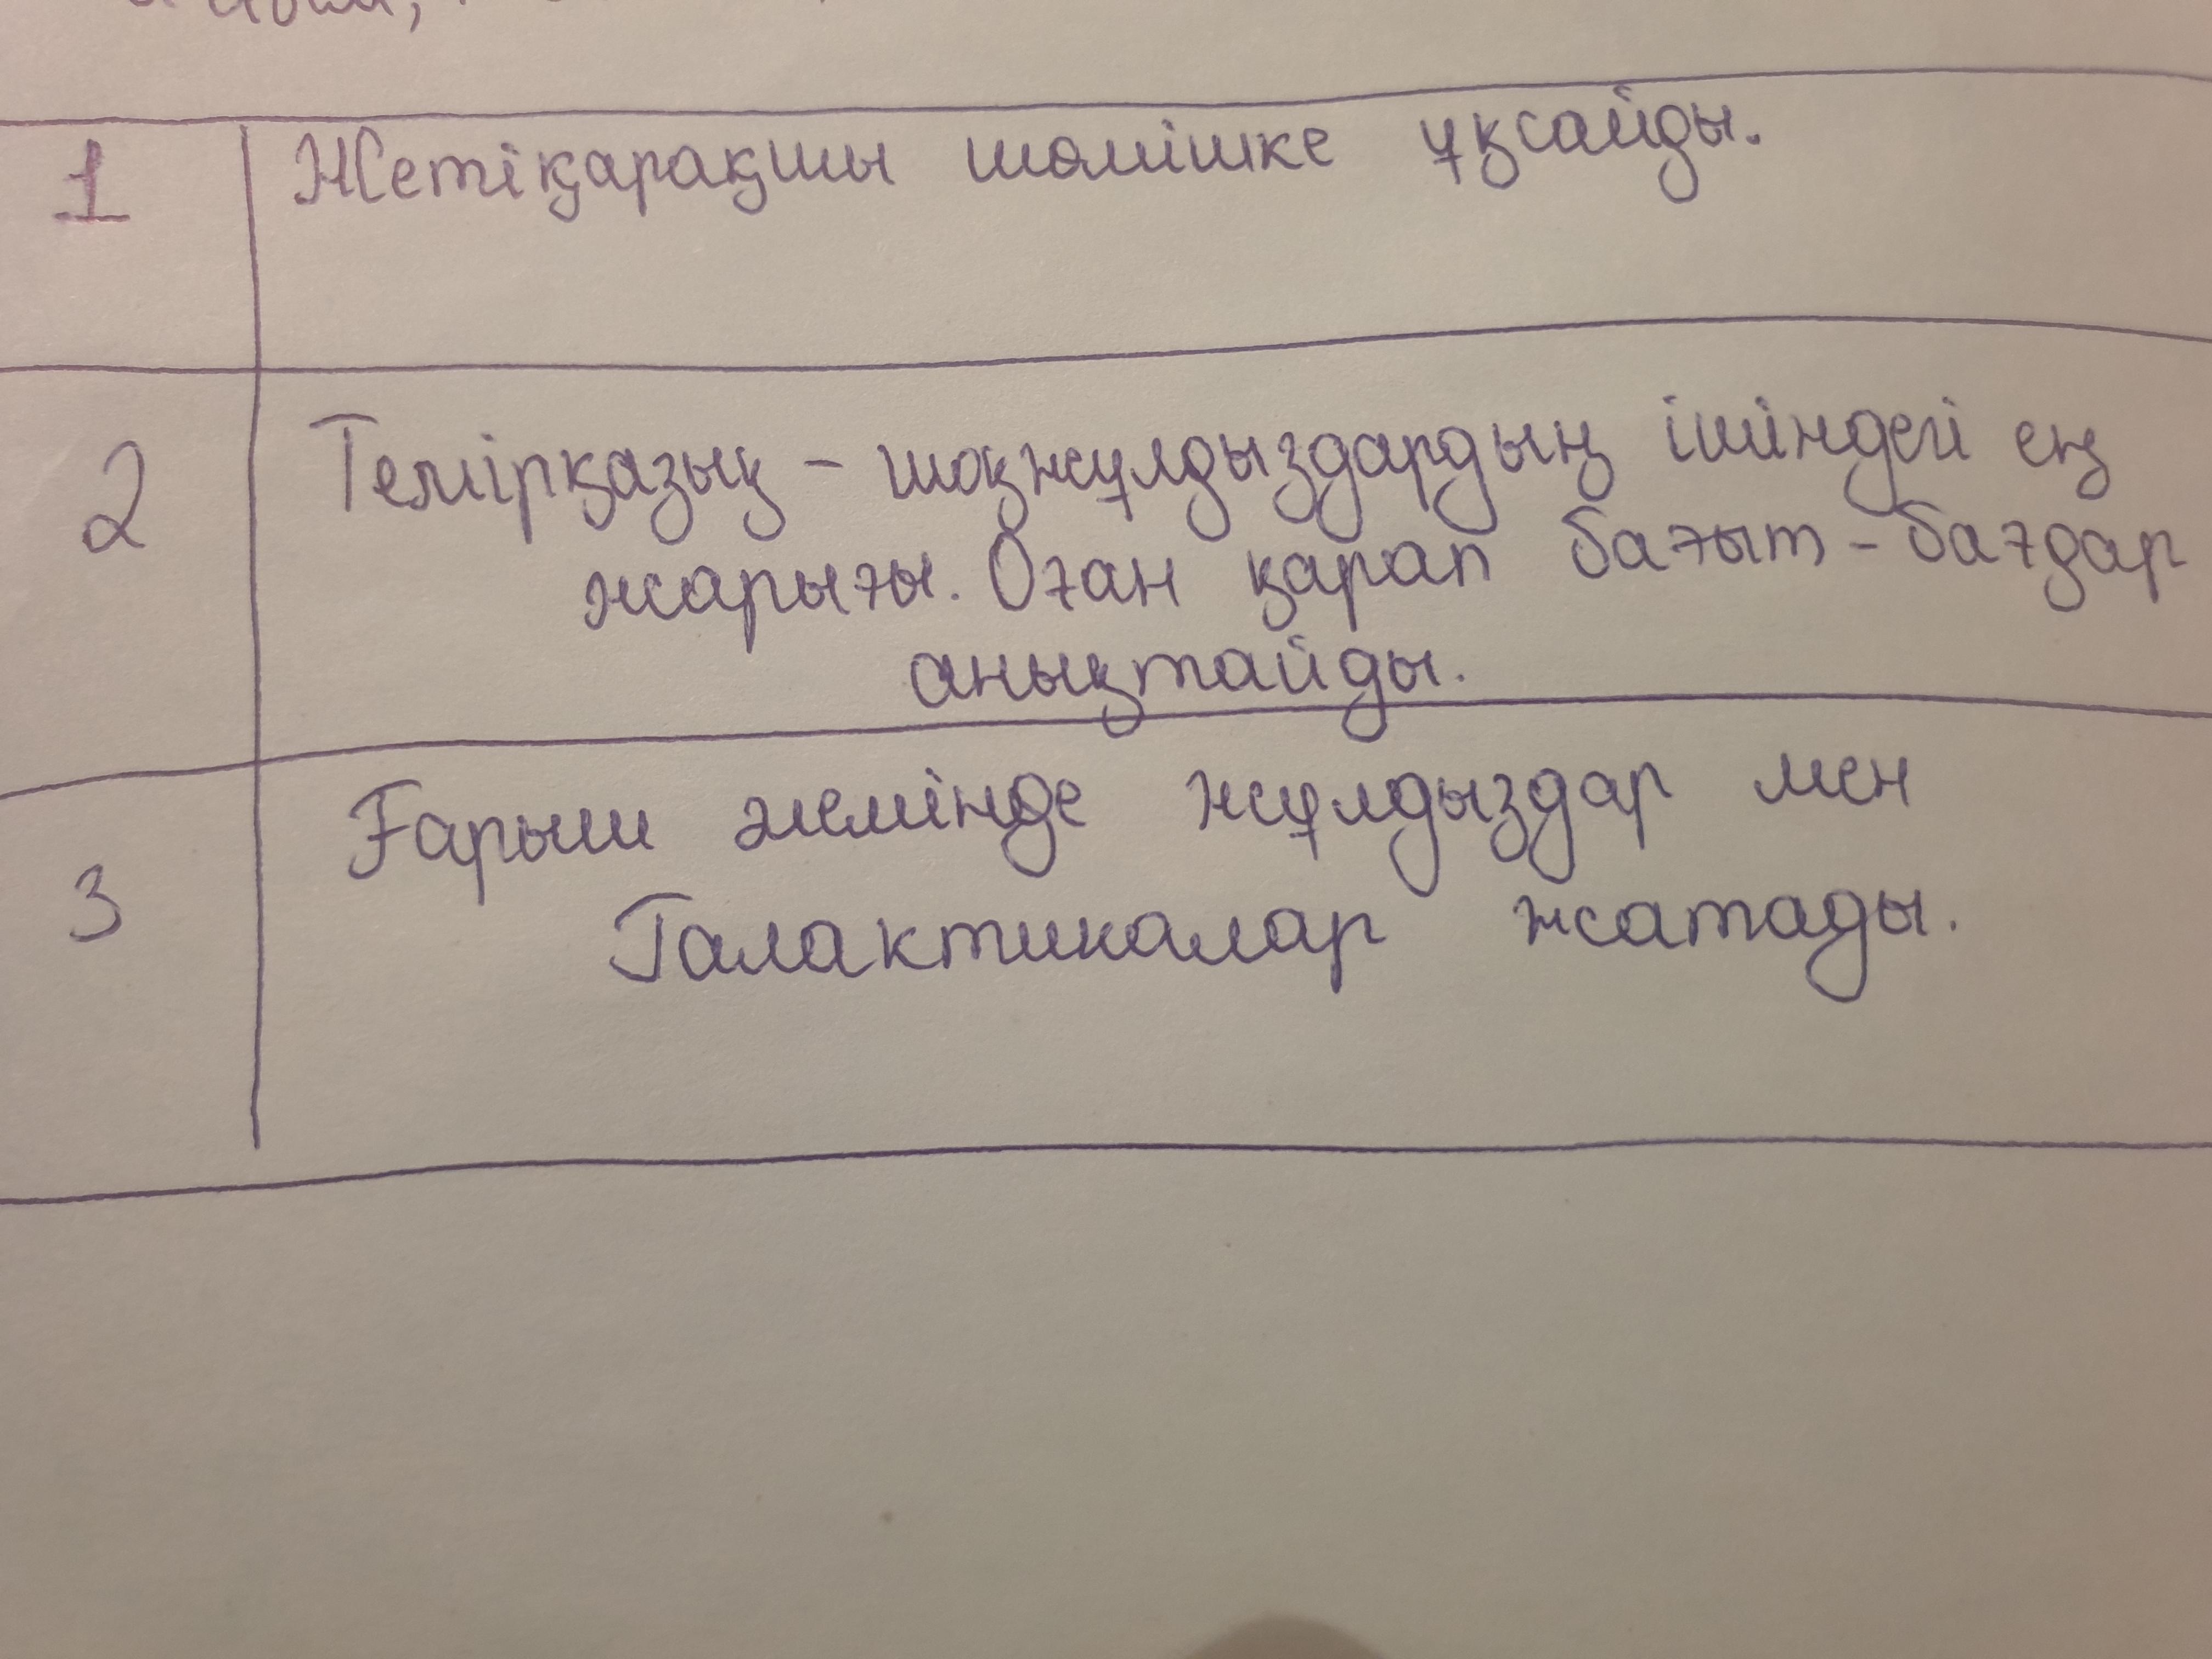 1 Жетіқарақшы шөмішке ұқсайды.
2 Темірқазық - шоқжұлдыздардың ішіндегі ең
жарығы. Оған қарап бағыт-бағдар
анықтайды.
3 Ғарыш әлемінде жұлдыздар мен
Галактикалар жатады.